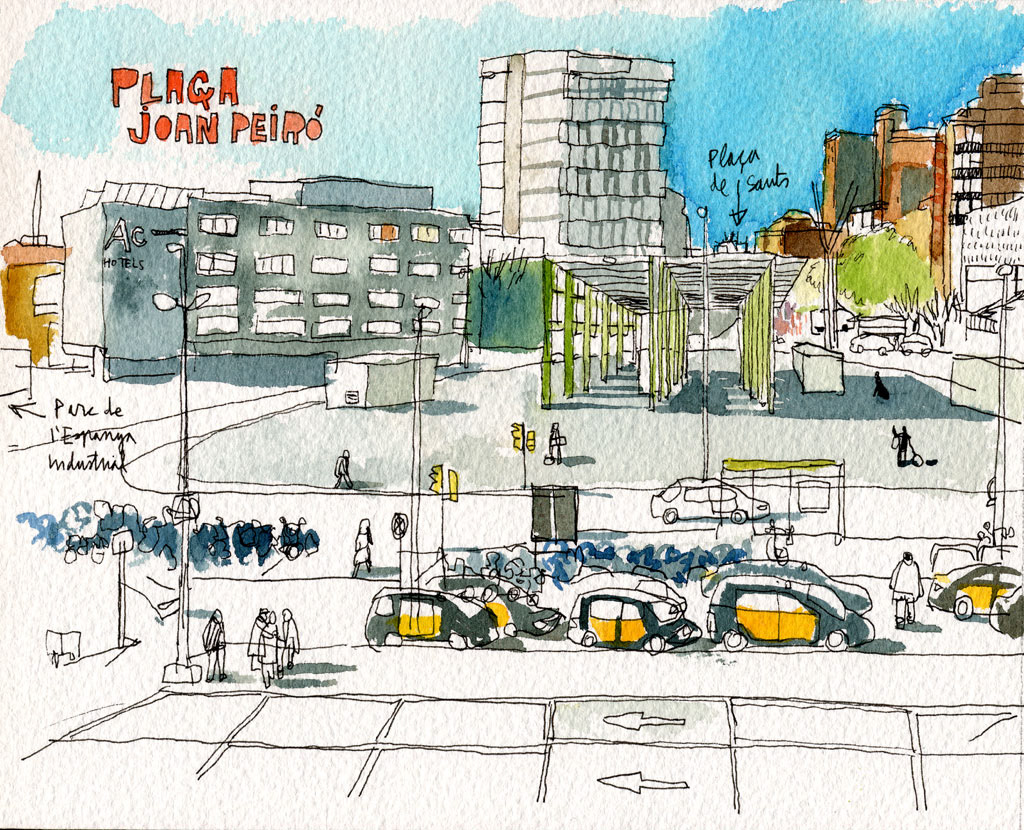 PLAÇA
JOAN PEIRÓ
Plaça
de Sants
AC
HOTELS
Parc de
l'Espanya
Industrial